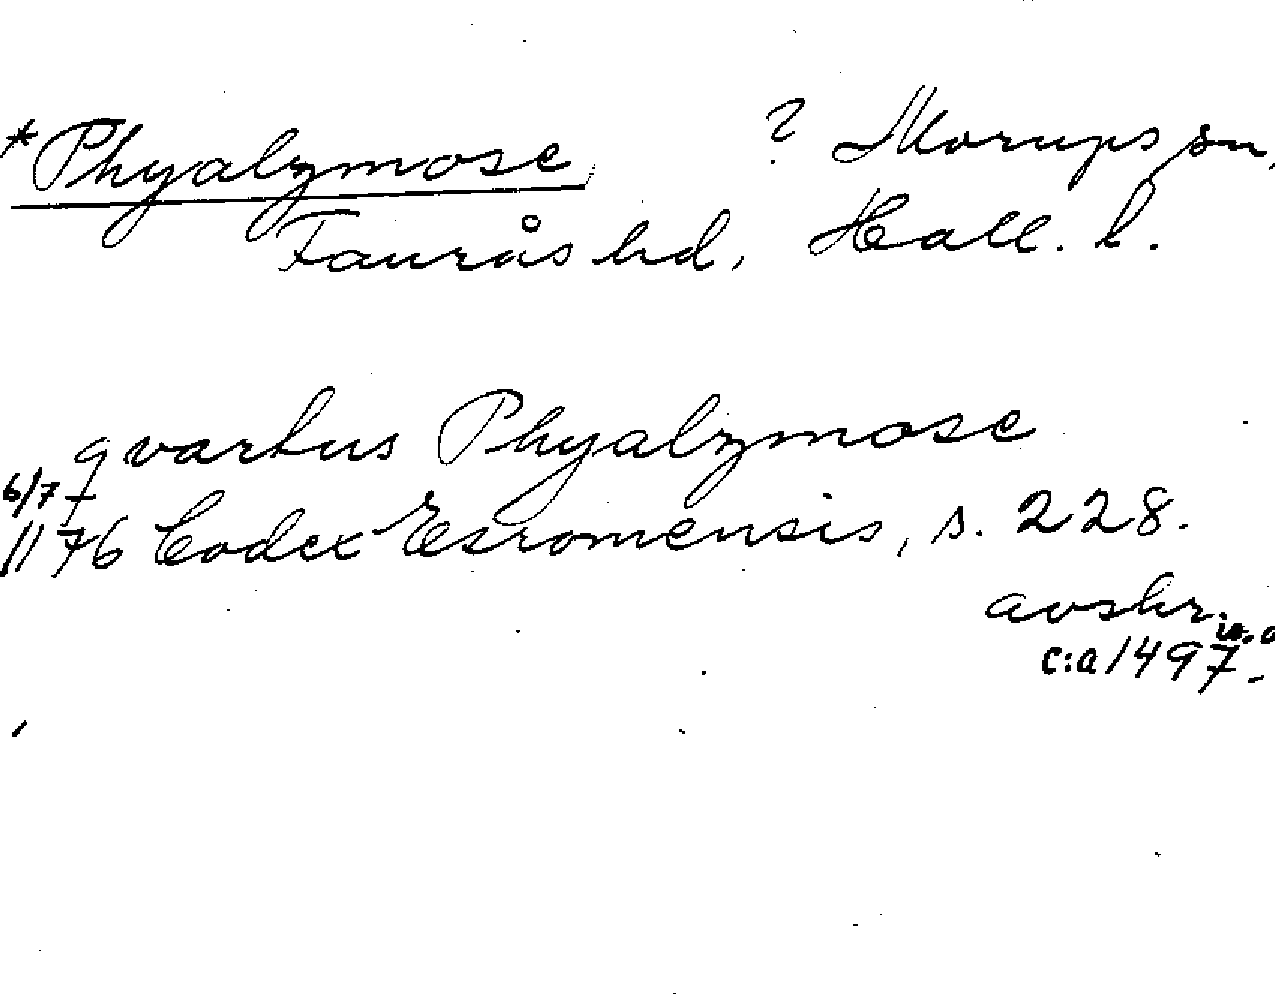 *Phyalzmose ? Morups sn,
Faurås hd, Hall. l.
qvartus Phyalzmose
6/7
1176 Codex Esromensis, s. 228.
avskr.
c:a 1497.